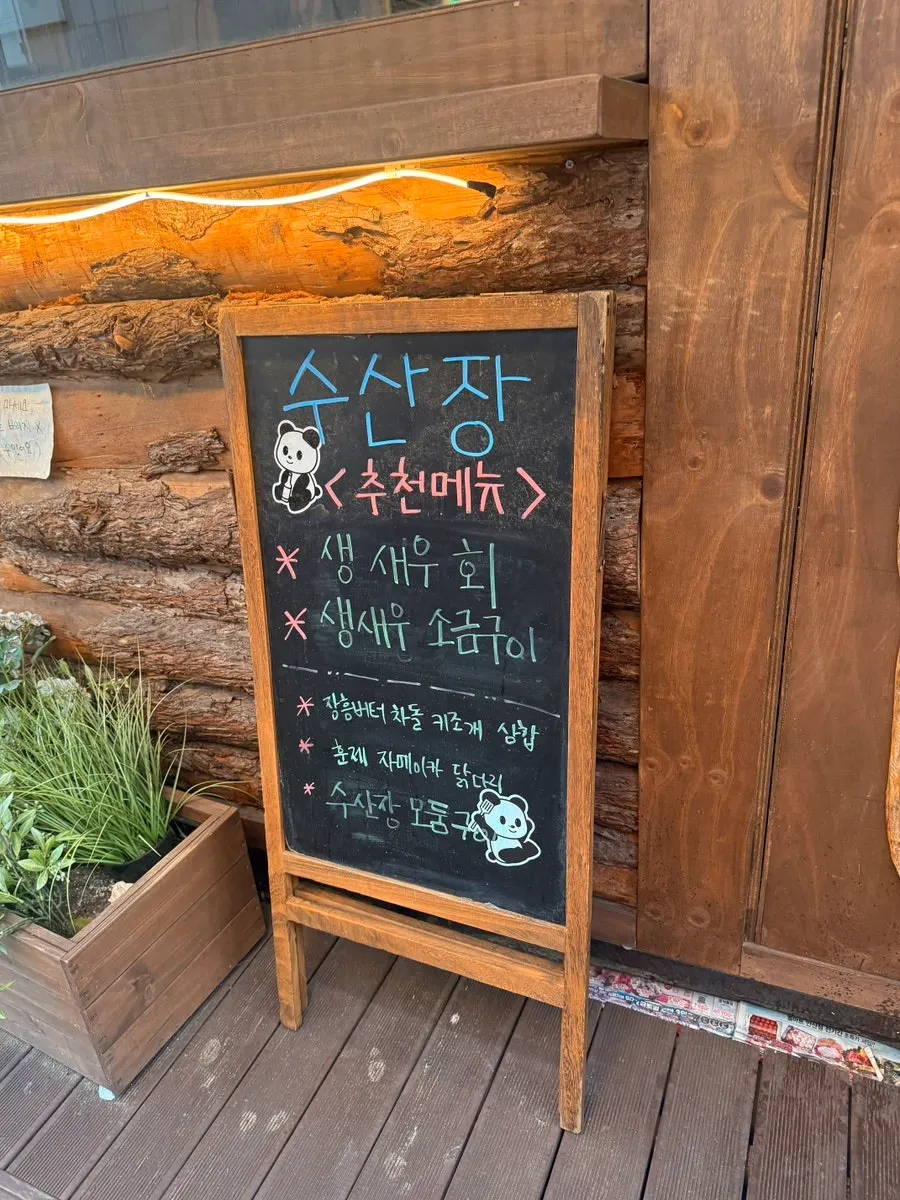 수산장
<추천메뉴>
* 생 새우 회
* 생새우 소금구이
* 장흥버터 차돌 키조개 삼합
* 훈제 자메이카 닭다리
* 수산장 모둠구